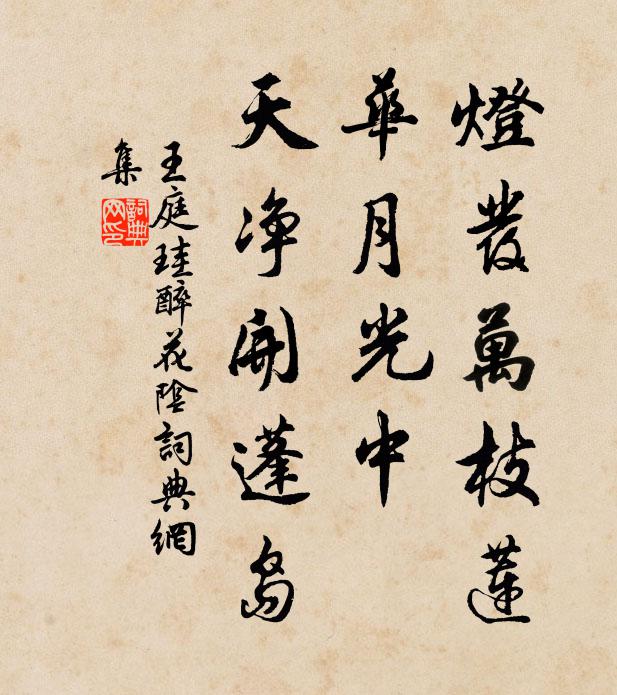 燈發萬枝蓮
華月光中
天净開蓬島
王庭珪醉花陰詞典網
集
詞典
网印